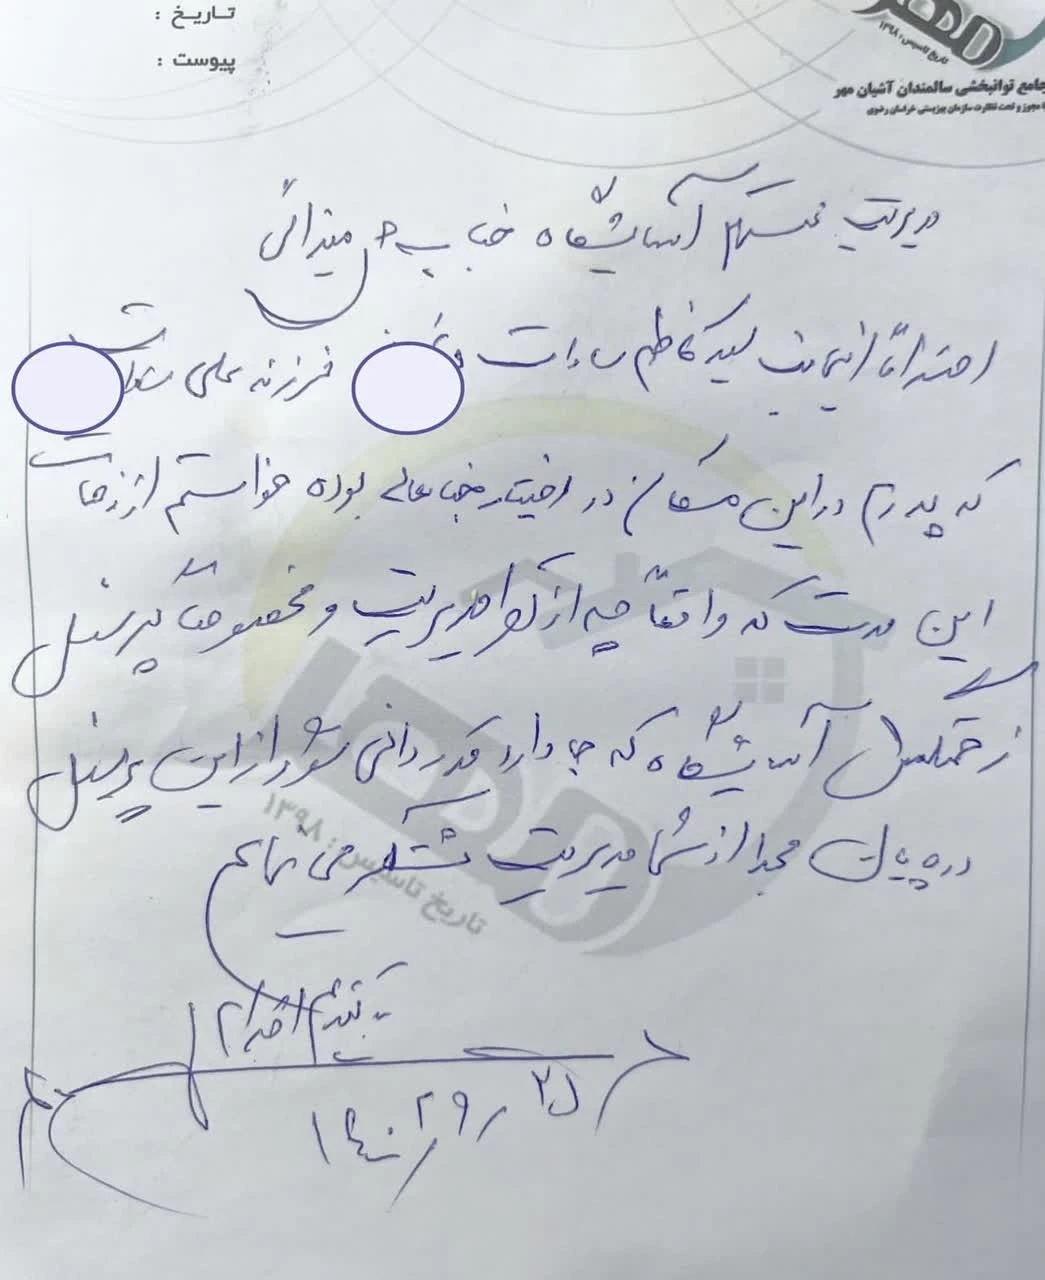 تاریخ :
پیوست :
مهر
تاریخ تاسیس : ۱۳۹۸
جامع توانبخشی سالمندان آشیان مهر
مجوز و تحت نظارت سازمان بهزیستی خراسان رضوی
مدیریت محترم آسایشگاه جناب
احتراماً اینجانب سید کاظم سادات فرزند علی
که پدرم در این مکان در اختیار جنابعالی بوده خواستم از زحمات
این مدت که واقعاً چه از مدیریت و مخصوصاً پرسنل
زحمتکش آسایشگاه که جا دارد قدردانی شود از این پرسنل
در پایان مجدا از شما مدیریت تشکر می نمایم
با تقدیم احترام
۱۴۰۲/۹/۲۵
مهر
تاریخ تاسیس : ۱۳۹۸